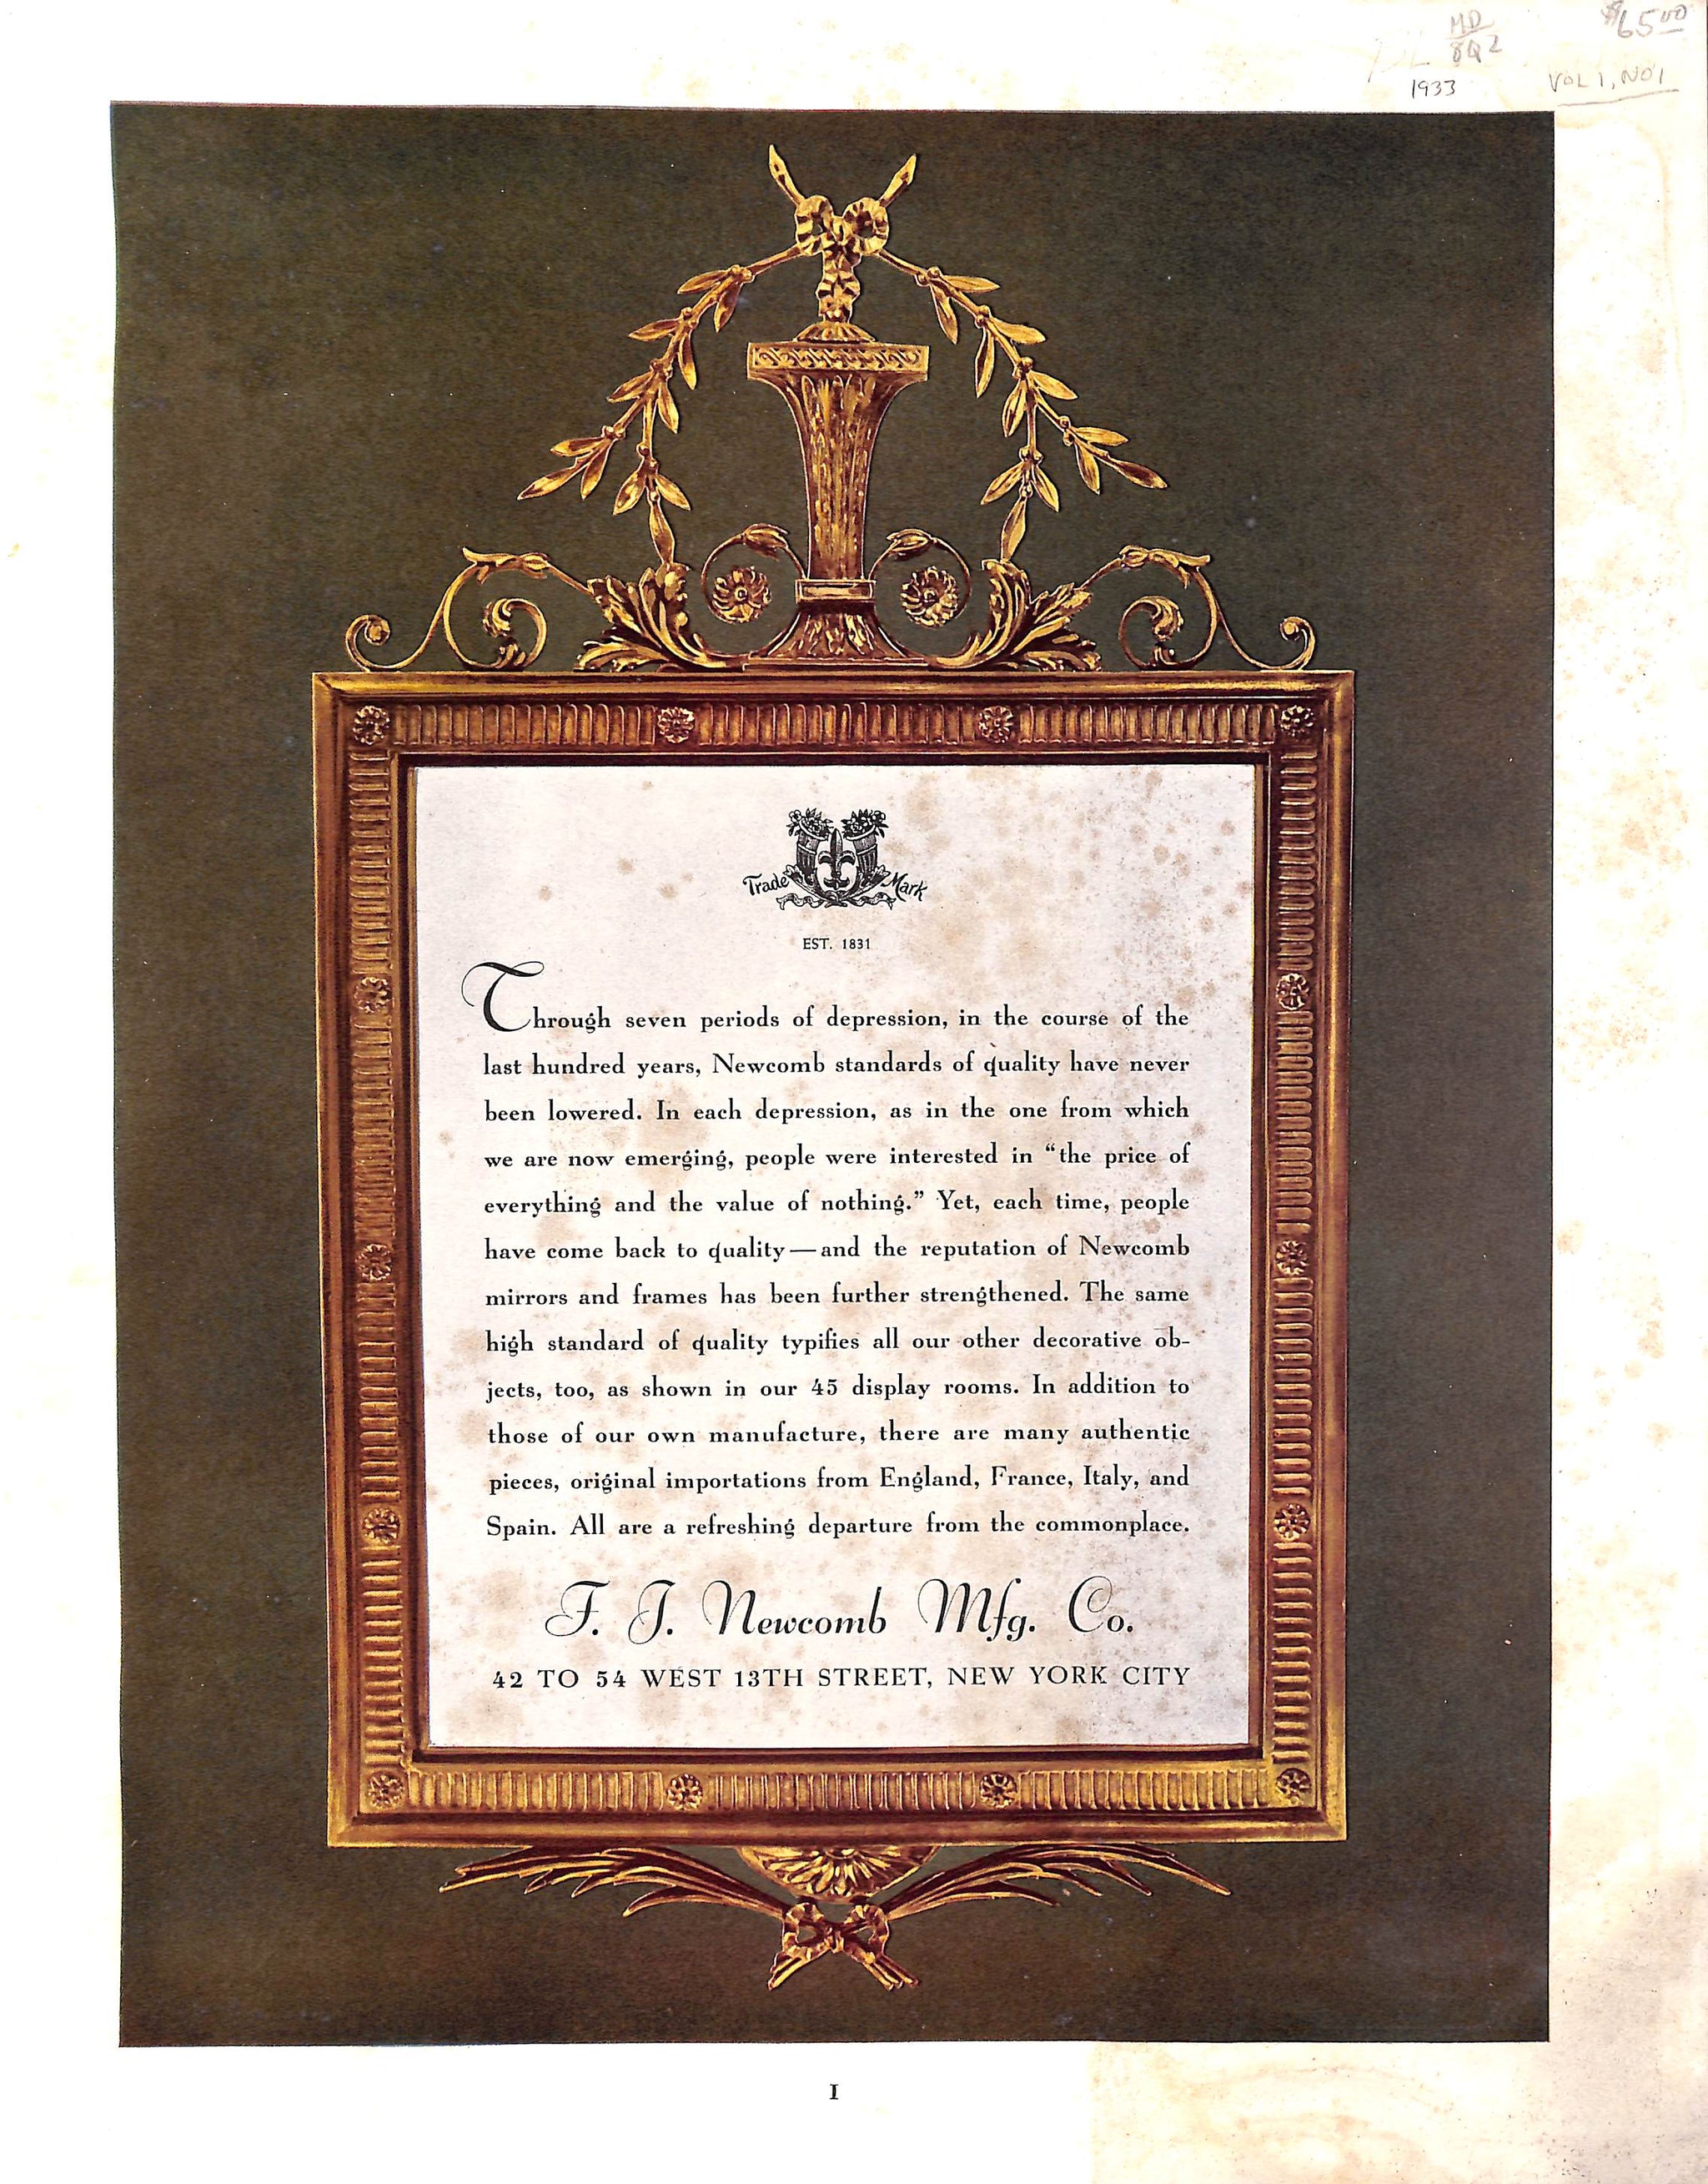 $65.00
MD
8Q2
1933
VOL 1, NO 1
Trade Mark
EST. 1831
Through seven periods of depression, in the course of the
last hundred years, Newcomb standards of quality have never
been lowered. In each depression, as in the one from which
we are now emerging, people were interested in “the price of
everything and the value of nothing.” Yet, each time, people
have come back to quality—and the reputation of Newcomb
mirrors and frames has been further strengthened. The same
high standard of quality typifies all our other decorative ob-
jects, too, as shown in our 45 display rooms. In addition to
those of our own manufacture, there are many authentic
pieces, original importations from England, France, Italy, and
Spain. All are a refreshing departure from the commonplace.
F. J. Newcomb Mfg. Co.
42 TO 54 WEST 13TH STREET, NEW YORK CITY
I